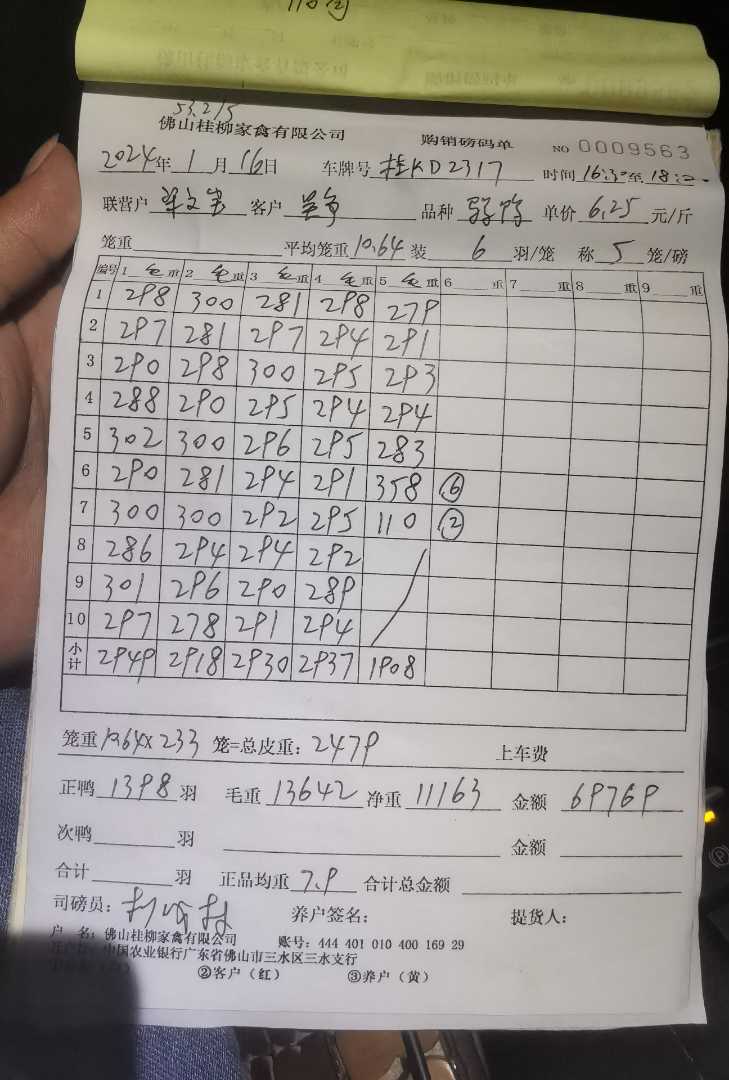 53.2/5
佛山桂柳家禽有限公司 购销磅码单 NO 0009563
2024年 1 月 16日 车牌号 桂KD2317 时间 16:30至 18:20
联营户 客户 品种 单价 6.25 元/斤
笼重 平均笼重 10.64 装 6 羽/笼 称 5 笼/磅
编号 1 毛 重 2 毛 重 3 毛 重 4 毛 重 5 毛 重 6 重 7 重 8 重 9 重
1 298 300 281 298 279
2 297 281 297 294 291
3 290 298 300 295 293
4 288 290 295 294 294
5 302 300 296 295 283
6 290 281 294 291 358 ⑥
7 300 300 292 295 110 ②
8 286 294 294 292
9 301 296 290 289
10 297 278 291 294
小计 2949 2918 2930 2937 1908
笼重 10.64X 233 笼=总皮重: 2479 上车费
正鸭 1398 羽 毛重 13642 净重 11163 金额 69769
次鸭 羽 金额
合计 羽 正品均重 7.9 合计总金额
司磅员: 养户签名: 提货人:
户 名: 佛山桂柳家禽有限公司 账号: 444 401 010 400 169 29
中国农业银行广东省佛山市三水区三水支行
②客户（红） ③养户（黄）